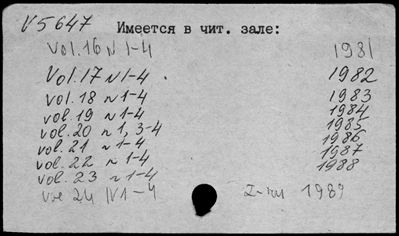 V5647
Имеется в чит. зале:
Vol. 16 N 1-4 1981
Vol. 17 N 1-4 1982
vol. 18 N 1-4 1983
vol. 19 N 1-4 1984
vol. 20 N 1, 3-4 1985
vol. 21 N 1-4 1986
vol. 22 N 1-4 1987
vol. 23 N 1-4 1988
vol 24 N 1-4 1989